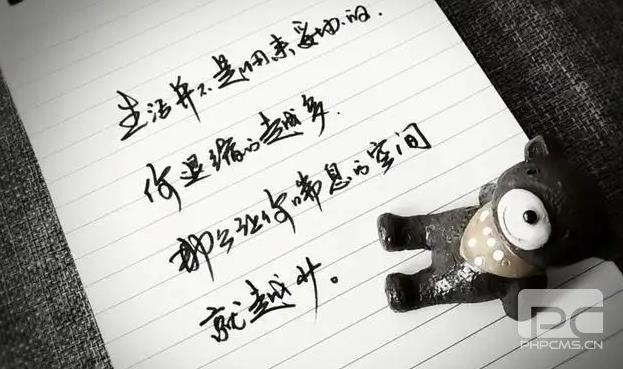 生活并不是用来妥协的.
你退缩的越多.
那么让你喘息的空间
就越少。
PC
PHPCMS.CN